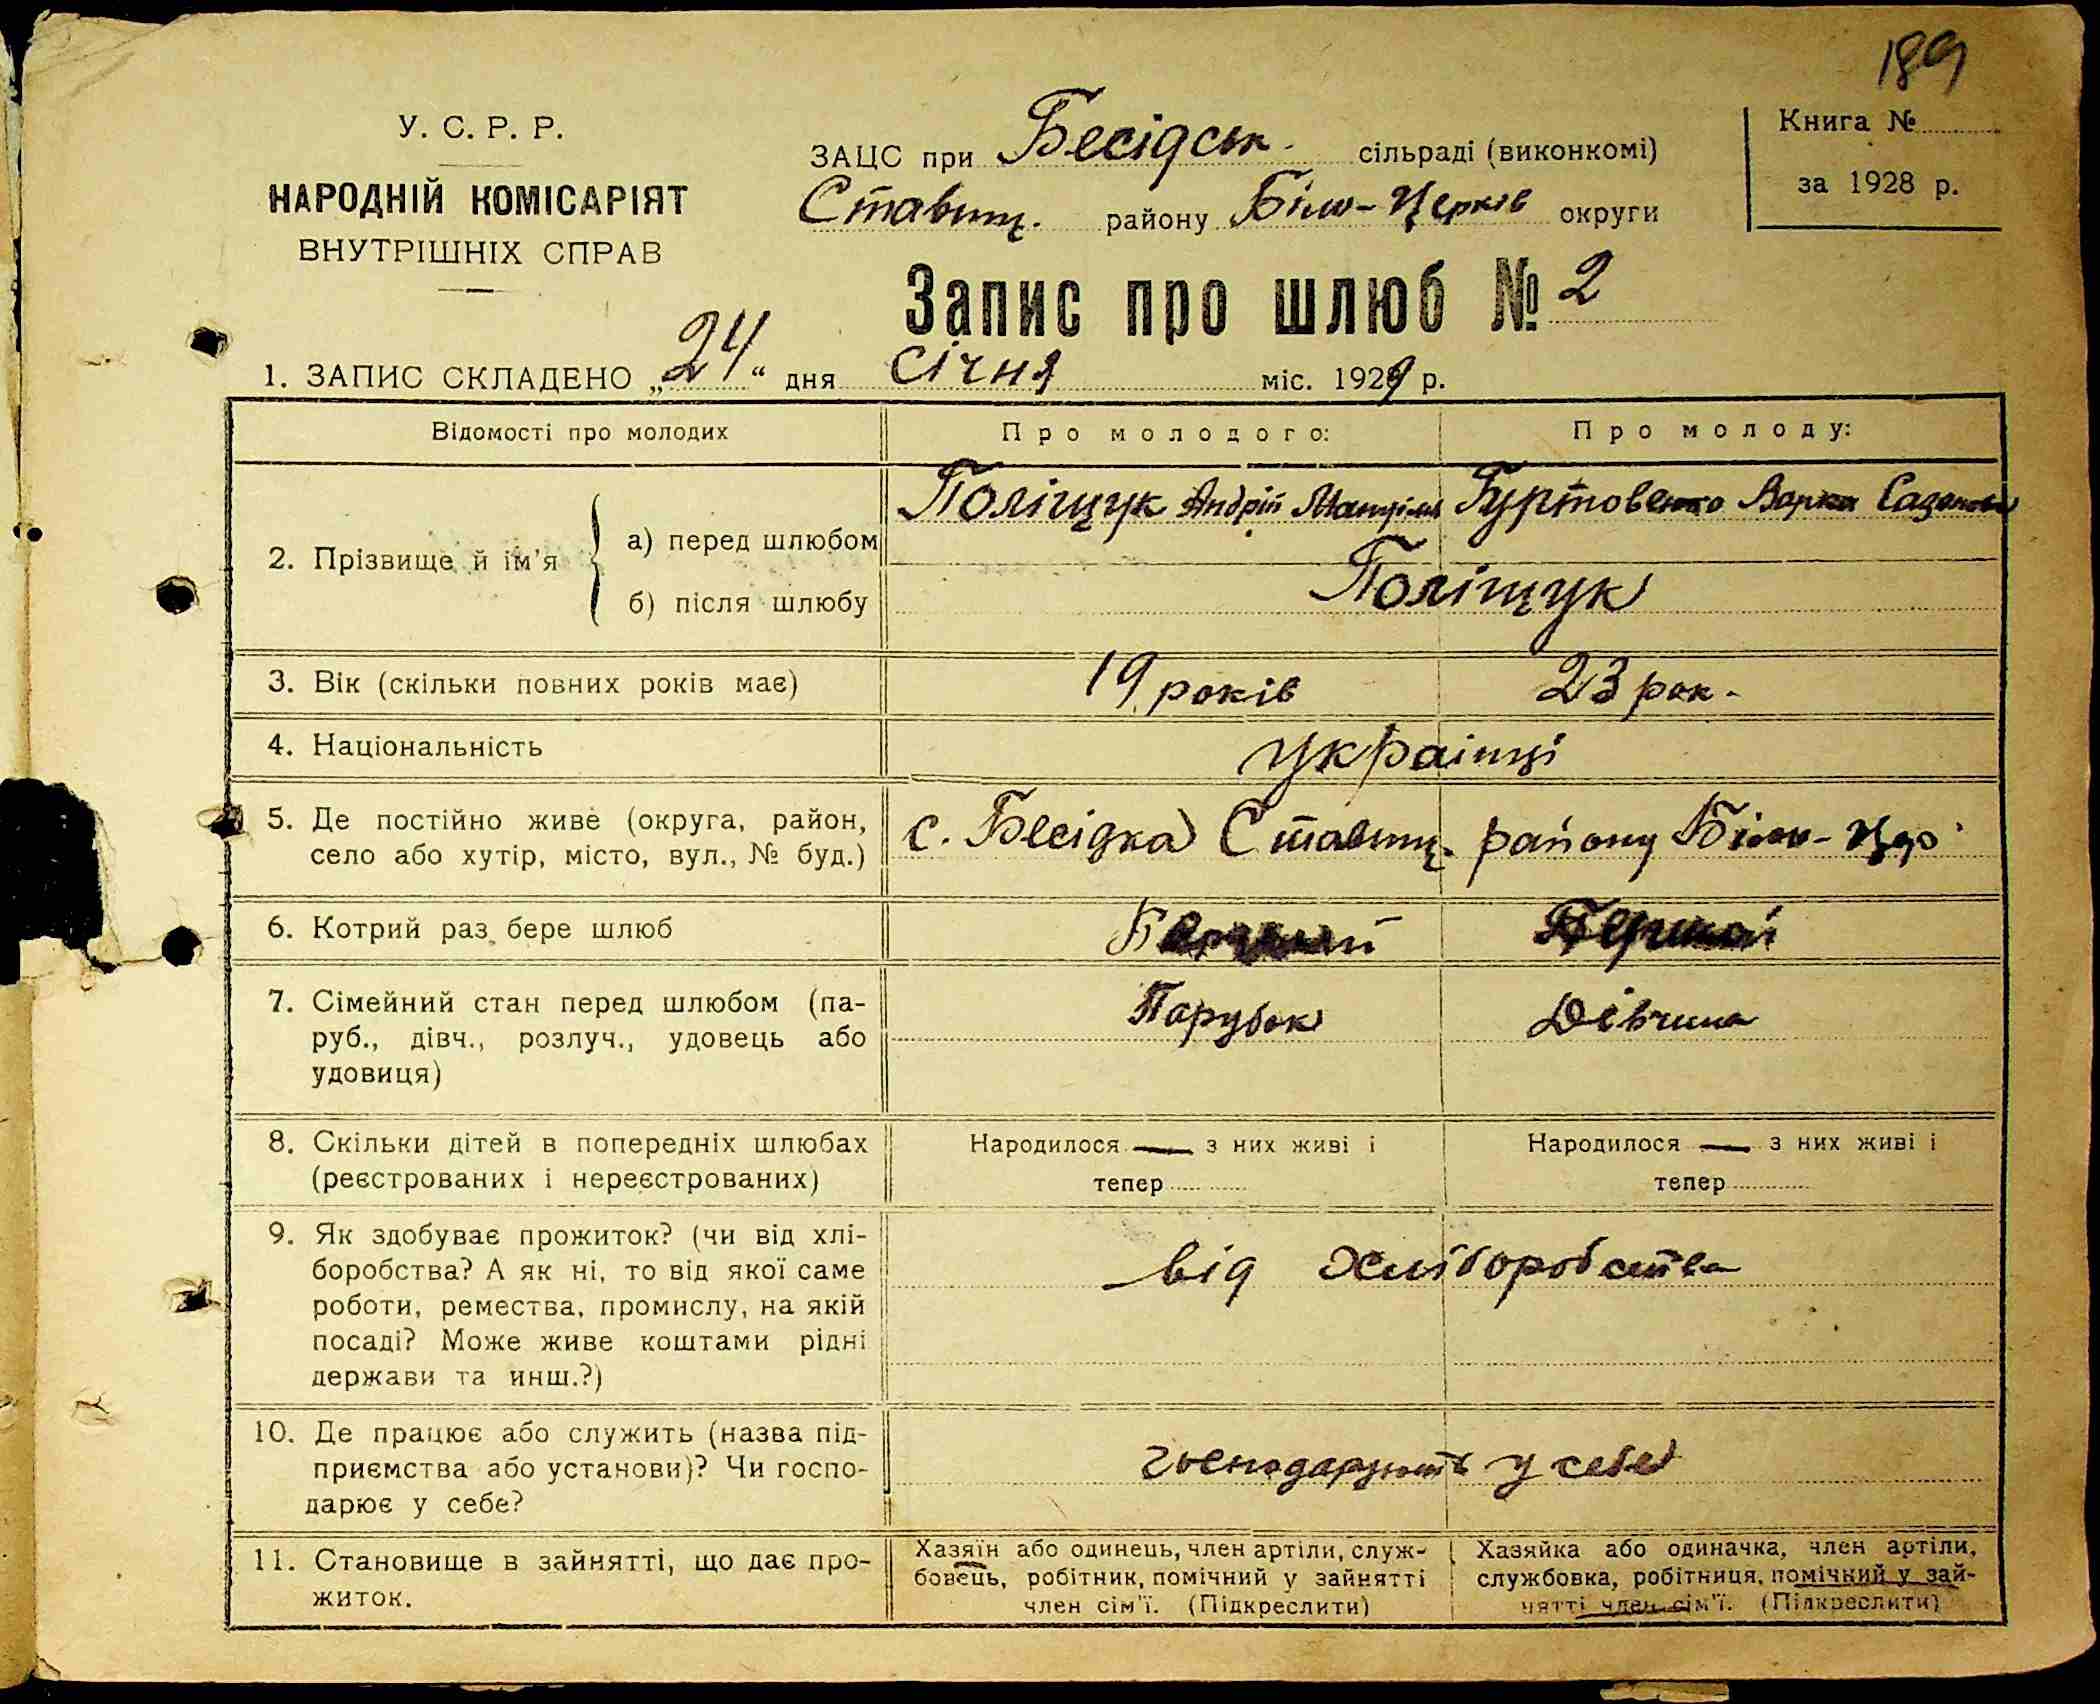 189
У. С. Р. Р.
НАРОДНІЙ КОМІСАРІЯТ
ВНУТРІШНІХ СПРАВ
ЗАЦС при Бесідськ. сільраді (виконкомі)
Ставищ. району Біло-Церків округи
Книга №
за 1928 р.
Запис про шлюб № 2
1. ЗАПИС СКЛАДЕНО „24“ дня січня міс. 1929 р.
Відомості про молодих
Про молодого:
Про молоду:
2. Прізвище й ім'я
а) перед шлюбом
Поліщук Андрій
Гуртовенко Варка
б) після шлюбу
Поліщук
3. Вік (скільки повних років має)
19 років
23 рок.
4. Національність
українці
5. Де постійно живе (округа, район,
село або хутір, місто, вул., № буд.)
с. Бесідка Ставищ. району Біло-Цер
6. Котрий раз бере шлюб
Первий
7. Сімейний стан перед шлюбом (па-
руб., дівч., розлуч., удовець або
удовиця)
Парубок
Дівчина
8. Скільки дітей в попередніх шлюбах
(реєстрованих і нереєстрованих)
Народилося — з них живі і
тепер
Народилося — з них живі і
тепер
9. Як здобуває прожиток? (чи від хлі-
боробства? А як ні, то від якої саме
роботи, ремества, промислу, на якій
посаді? Може живе коштами рідні
держави та инш.?)
від хліборобства
10. Де працює або служить (назва під-
приємства або установи)? Чи госпо-
дарює у себе?
господарують у себе
11. Становище в зайнятті, що дає про-
житок.
Хазяїн або одинець, член артіли, служ-
бовець, робітник, помічний у зайнятті
член сім'ї. (Підкреслити)
Хазяйка або одиначка, член артіли,
службовка, робітниця, помічний у зай-
нятті член сім'ї. (Підкреслити)